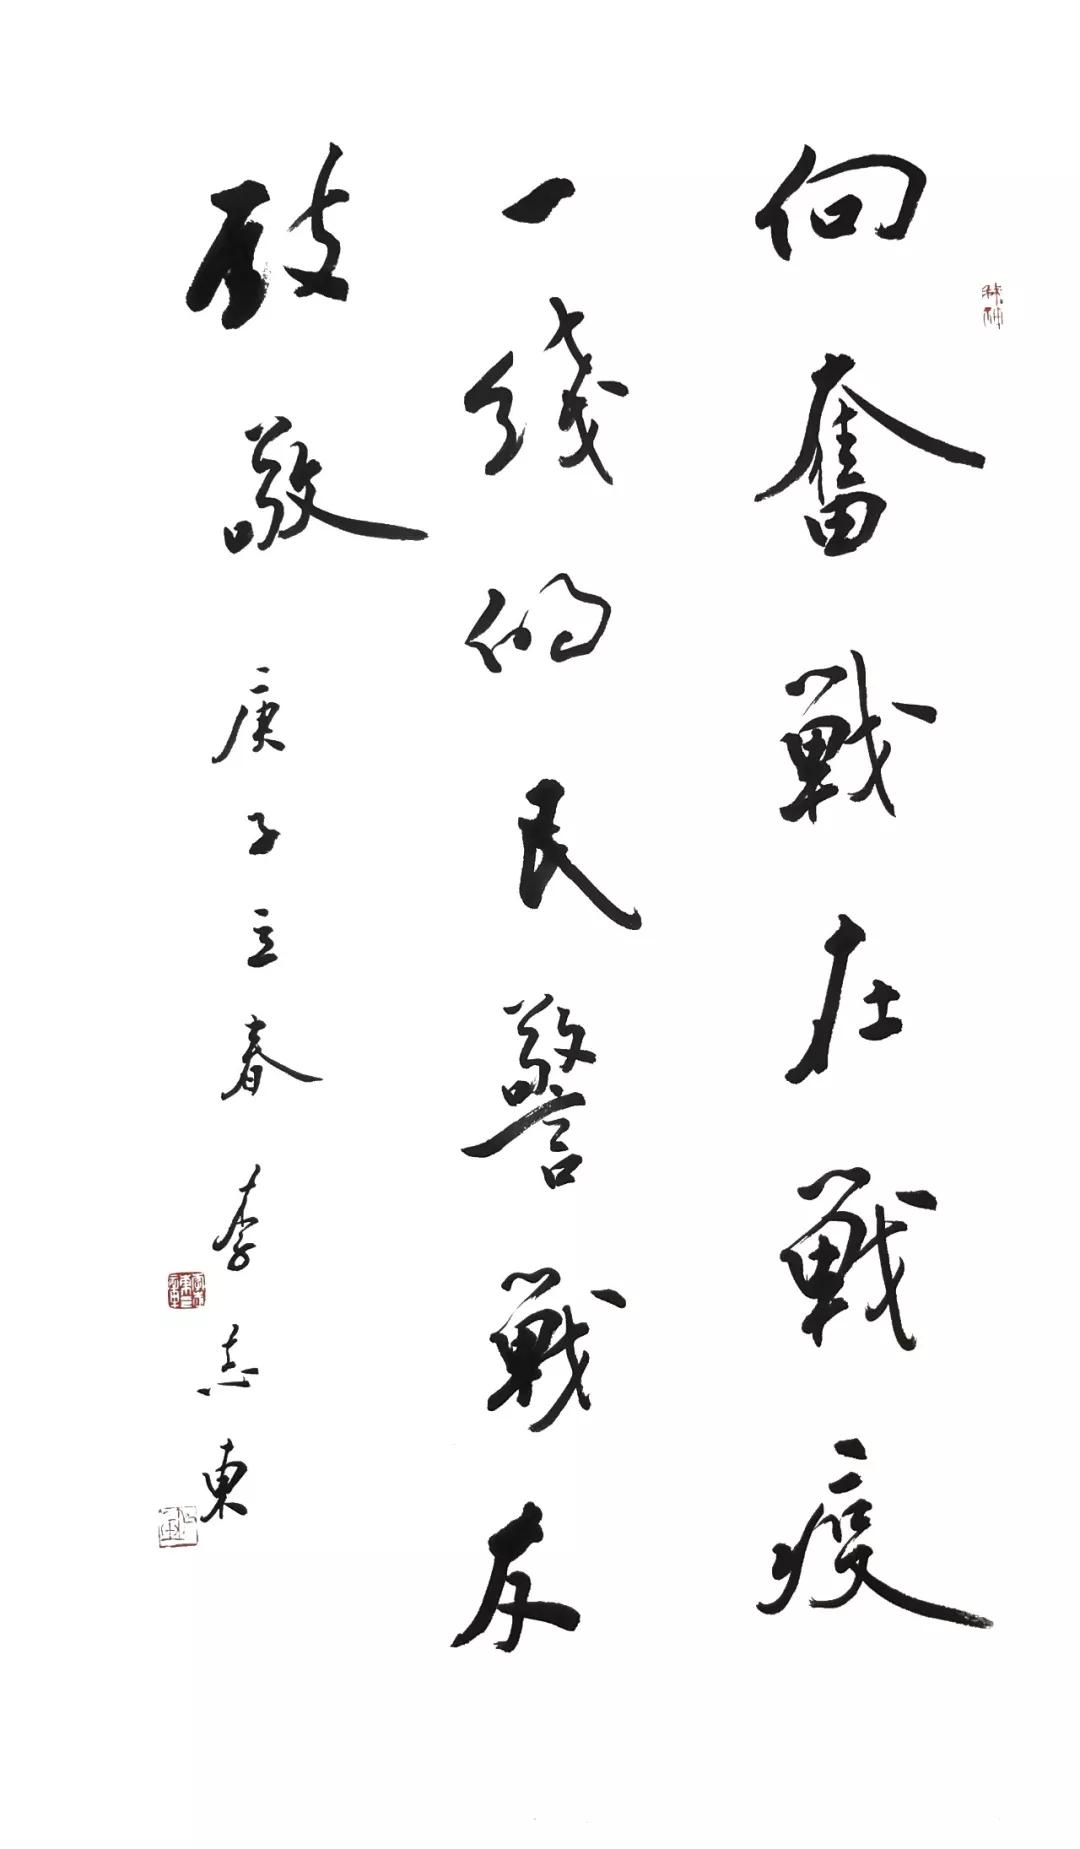 向奮戰在戰疫
一綫的民警戰友
致敬
庚子立春 李志東